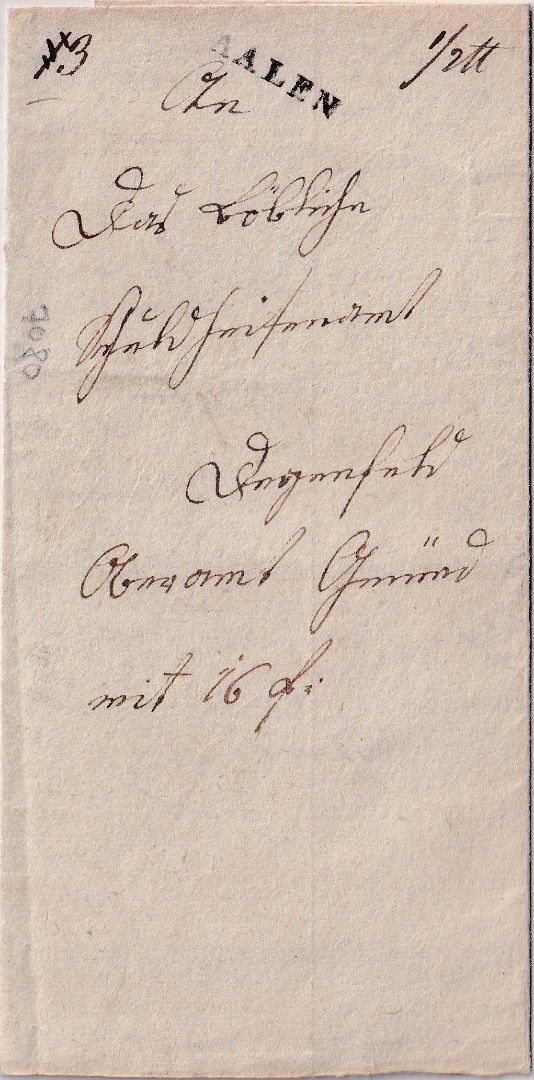 #3
AALEN
1/2 ℔
An
Das Löbliche
Schuldheisenamt
Degenfeld
Oberamt Gmünd
mit 16 f:
7080